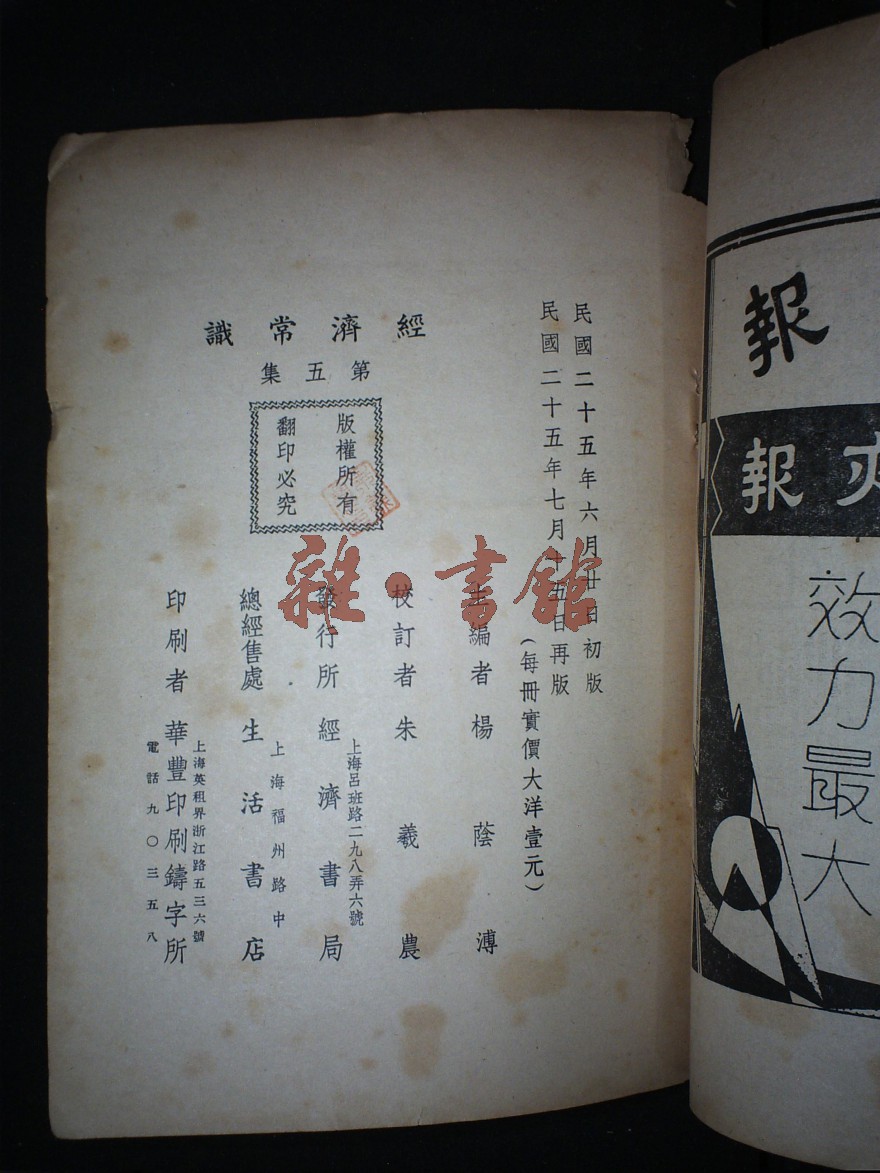 報
夾報
效力最大
民國二十五年六月廿日初版
民國二十五年七月十五日再版
(每冊實價大洋壹元)
經濟常識
第五集
版權所有
翻印必究
主編者 楊蔭溥
校訂者 朱羲農
發行所 經濟書局
上海呂班路二九八弄六號
總經售處 生活書店
上海福州路中
印刷者 華豐印刷鑄字所
上海英租界浙江路五三六號
電話九〇三五八
雜·書館